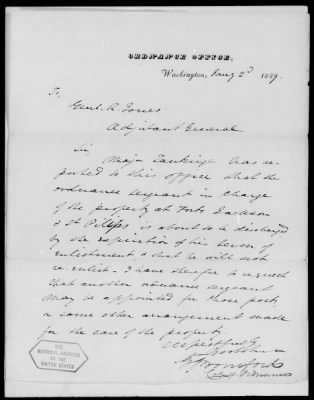 ORDNANCE OFFICE,
Washington, Jany 2d 1839.
To
Genl. R. Jones
Adjutant General
Sir,
Major has re-
ported to this office that the
ordnance sergeant in charge
of the property at Forts Jackson
& St Philips is about to be discharged
by the expiration of his term of
enlistment, & that he will not
re-enlist. I have therefore to request
that another ordnance sergeant
may be appointed for those posts
or some other arrangement made
for the care of the property.
Respectfully
G. Bomford
Col of Ordnance
THE
NATIONAL ARCHIVES
OF THE
UNITED STATES